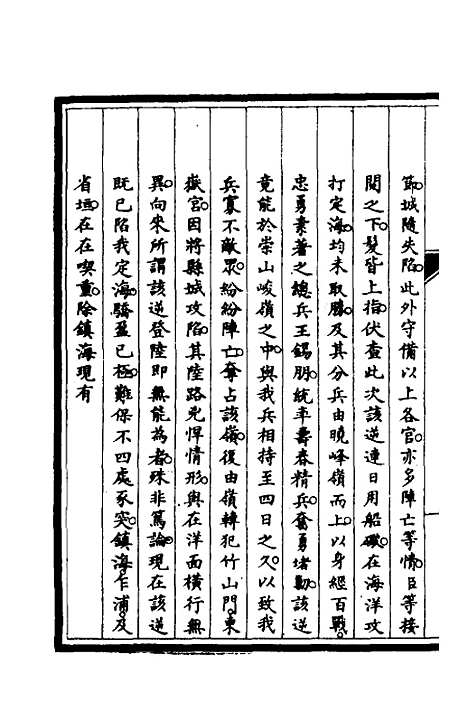 節。城隨失陷。此外守備以上各官。亦多陣亡等情。臣等接
閱之下。髮皆上指。伏查此次該逆連日用船礮在海洋攻
打定海。均未取勝。及其分兵由曉峰嶺而上。以身經百戰。
忠勇素著之總兵王錫朋。統率壽春精兵。奮勇堵勦。該逆
竟能於崇山峻嶺之中。與我兵相持至四日之久。以致我
兵寡不敵眾。紛紛陣亡。奪占該嶺。後由嶺轉犯竹山門。東
嶽宮。因將縣城攻陷。其陸路兇悍情形。與在洋面橫行無
異。向來所謂該逆登陸即無能為者。殊非篤論。現在該逆
既已陷我定海。驕盈已極。難保不四處豕突。鎮海。乍浦。及
省垣。在在喫重。除鎮海現有